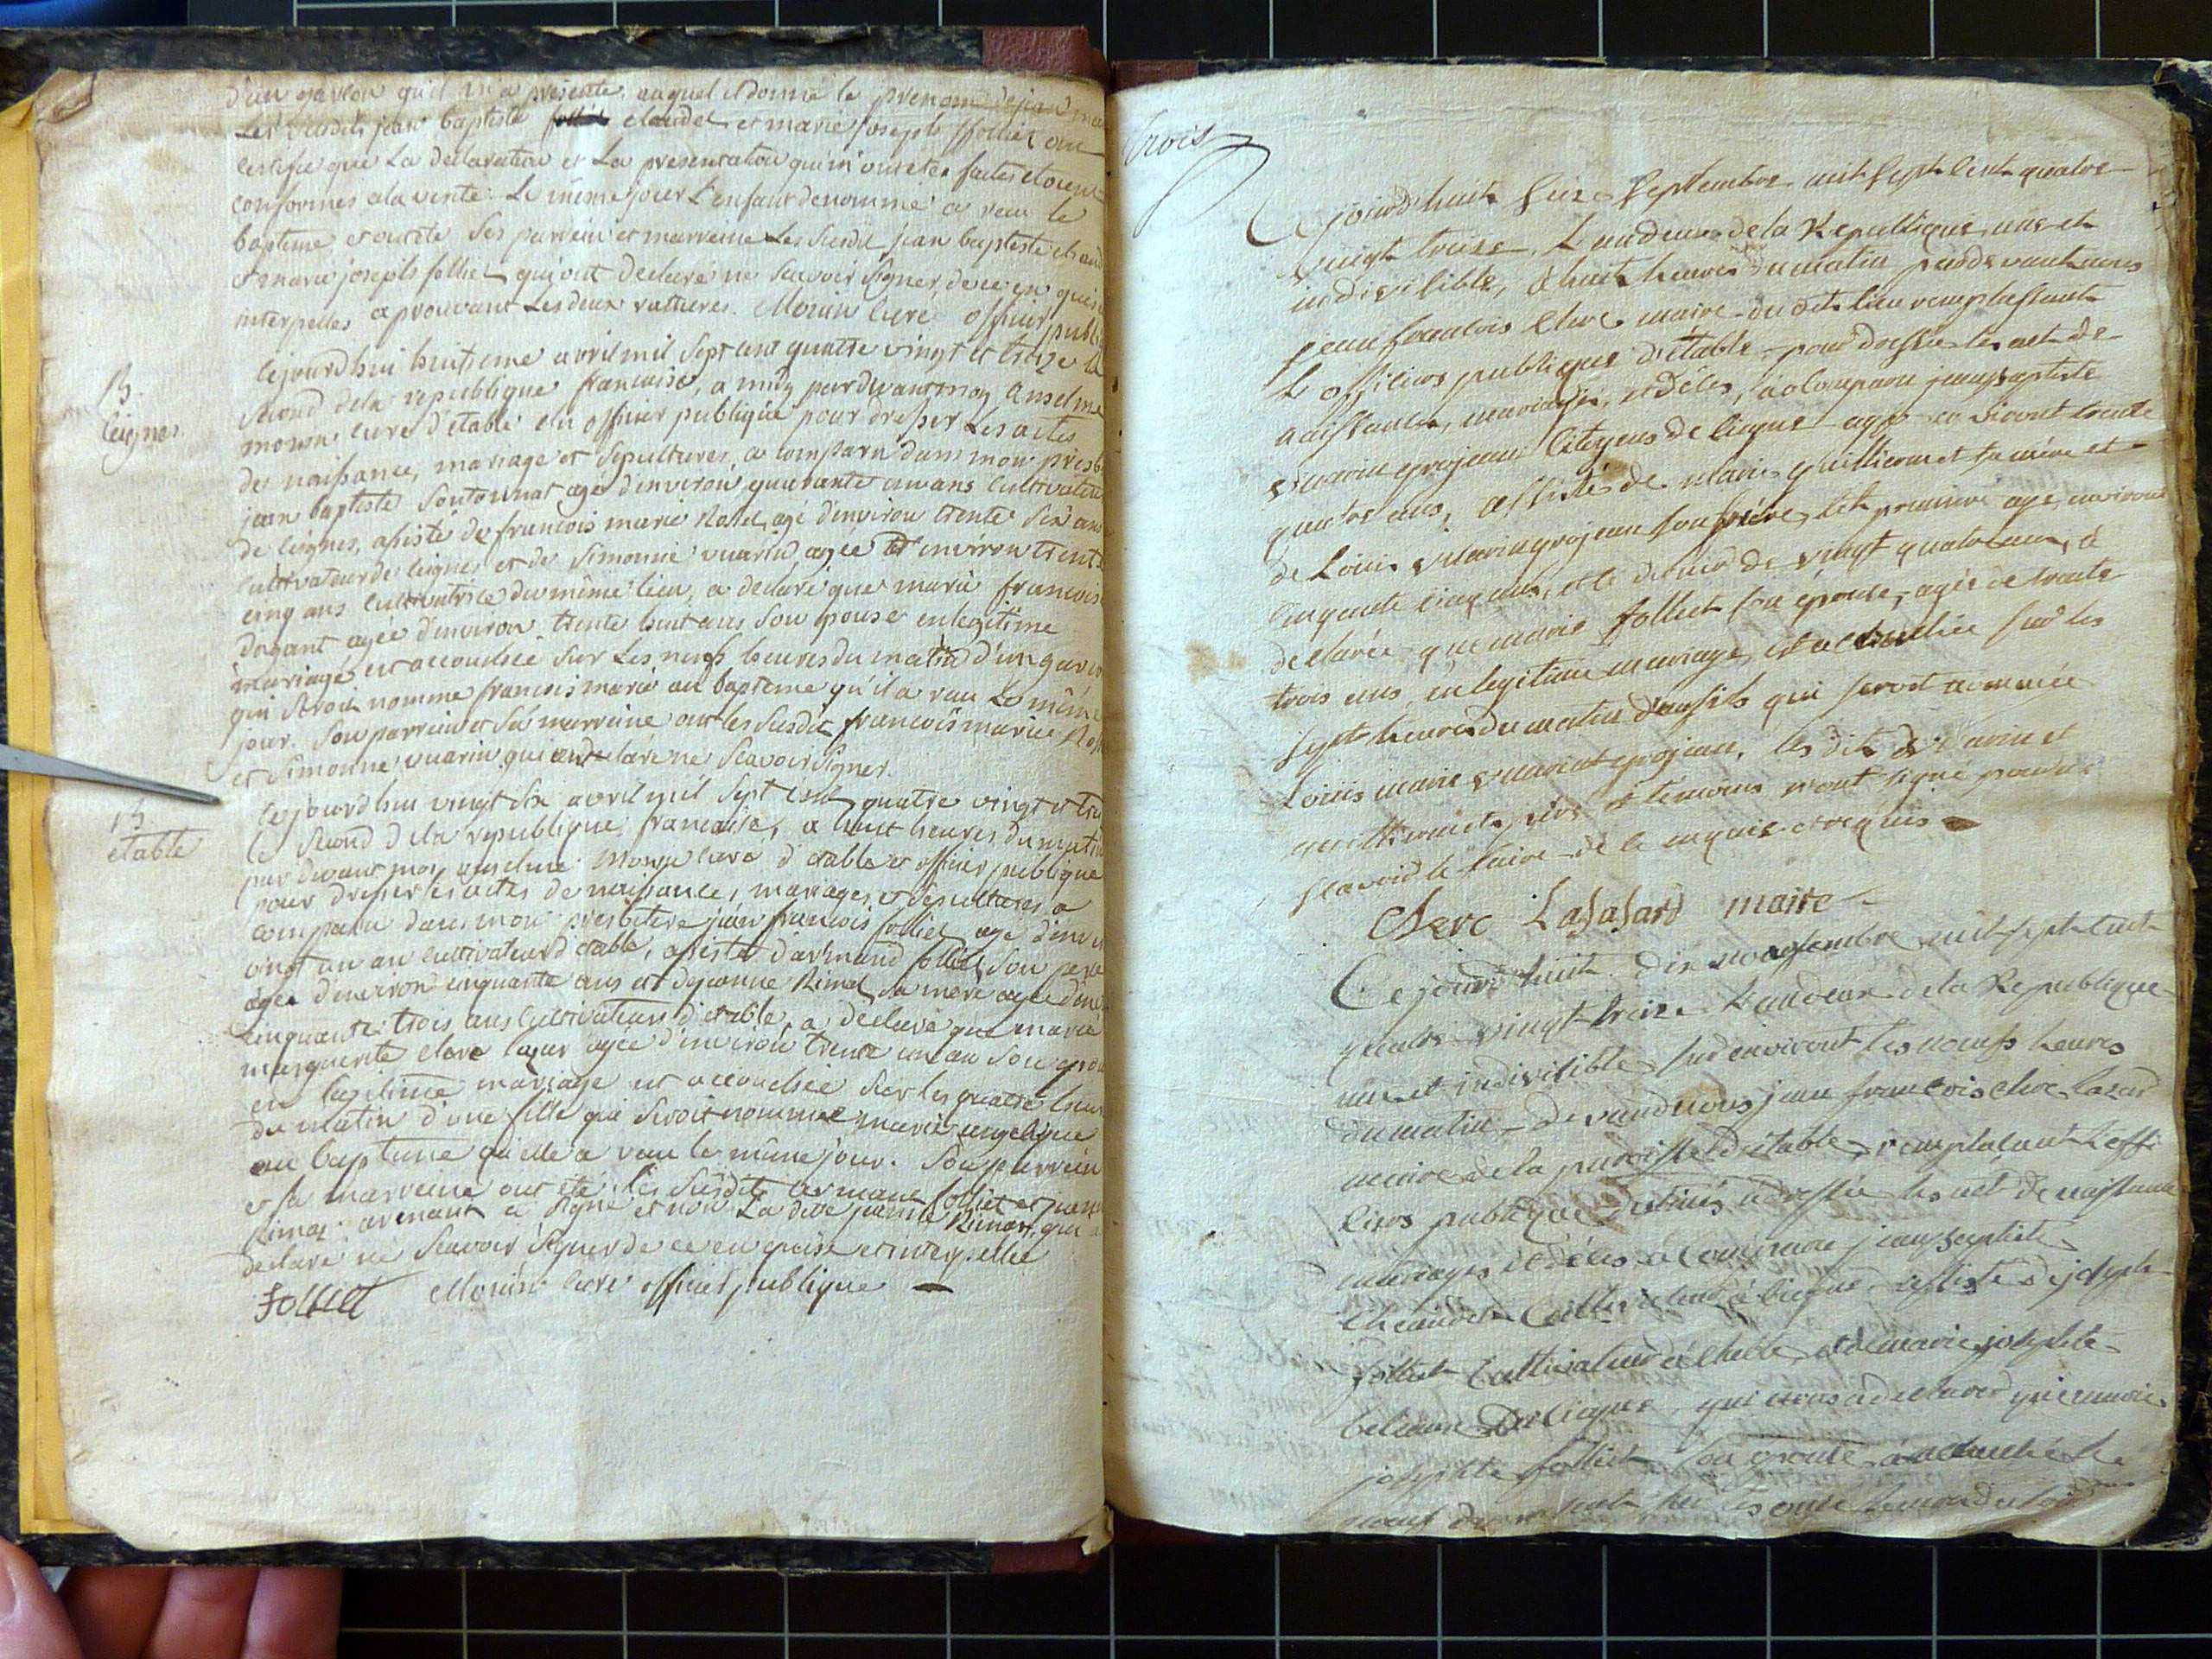 d'un garcon qu'il m'a presenté auquel il donné le prenom de jean
Les susdits jean baptiste claudet et marie joseph folliet ont
certifié que La declaration et La presentation qui m'ont etes faites etoient
conformes a la verité. Le même jour L'enfant denommé a recu le
bapteme et ont été ses parrein et marreine Les susdit jean baptiste
et marie joseph folliet qui ont declaré ne scavoir signer, de ce en quis
interpelles aprouvant Les deux ratures. Monin curé officier public
B.
leignes.
Cejourdhui huitieme avril mil sept cent quatre vingt et treze
second de la republique francaise, a midy pardevant moy anselme
monin curé d'etable elu officier publique pour dresser Les actes
de naissance, mariage et sepultures, a comparu dans mon
jean baptiste sontonnat agé d'environ quarante un ans cultivateur
de leignes, assisté de francois marie Rosset agé d'environ trente six ans
cultivateur de leignes et de simonne vuarin agée d'environ trente
cinq ans cultivatrice du même lieu, a declaré que marie francoise
agée d'environ trente huit ans son epouse en legitime
mariage est accouchée sur Les neufs heures du matin d'un garcon
qui seroit nommé francois marie au bapteme qu'il a recu Le même
jour. Son parrein et sa marreine ont les susdit francois marie
et simonne vuarin qui ont declaré ne scavoir signer.
B
etable
Cejourdhui vingt six avril mil sept cent quatre vingt et
Le second de la republique francaise, a huit heures du matin
par devant moy anselme Monin curé d'etable et officier publique
pour dresser les actes de naissance, mariages et sepultures a
comparu dans mon presbitere jean francois folliet agé d'environ
vingt un an cultivateur d'etable, assisté d'armand folliet son pere
agé d'environ cinquante ans et de jeanne Rimet sa mere agée
cinquante trois ans cultivateurs d'etable, a declaré que marie
marguerite clerc lazar agée d'environ trente un an son
en legitime mariage est accouchée sur les quatre heures
du matin d'une fille qui seroit nommée marie angelique
au bapteme qu'elle a recu le même jour. Son parrein
et sa marreine ont été les susdits armand folliet et jeanne
a signé et non La dite jeanne qui
declaré ne scavoir signer de ce en quise et interpellée
Folliet Monin curé officier publique
trois
Ce jourd'huit seize septembre mil sept cent quatre
vingt treize L'an deux de la Republique une et
indivisible, à huit heures du matin pardevant nous
jean francois Clerc maire du dit lieu remplassant
L officiers publique d'étable pour dresser les act de
naissances, mariages, et décès, a comparu jean baptiste
vuarin grojean Citoyens de leigne agé en viront trente
quatre ans, assistés de marie guilliermet sa mère et
de Louis vuarin grojean son frère, la premiere agé environt
cinquante cinq ans, et le dernier de vingt quatre ans, à
declarée que marie follliet son épouse, agée de trante
trois ans en legitime mariage, est accouchée sur les
sept heures du matin d'un fils qui seroit nommée
Louis marie vuarin grojean, les dit vuarin et
guilliermet, pere et temoins n'ont signé pour ne
scavoir le faire de ce enquis et requis
Clerc Lasasard maire
Ce jourd huit dix septembre mil sept cent
quatre vingt treize L'an deux de la Republique
une et indivisible sur environt les neufs heures
du matin devand nous jean francois clerc lazard
maire de la paroisse d'étable remplacant L'offi
ciers publique destinés a dressée les act de naissance
mariages et décès a comparu jean baptiste
Cultivateur à leigne assisté de joseph
folliet Cultivateur et de marie josephte
de leigne, qui nous a declarer que marie
josephte folliet son épouse a accouchée le